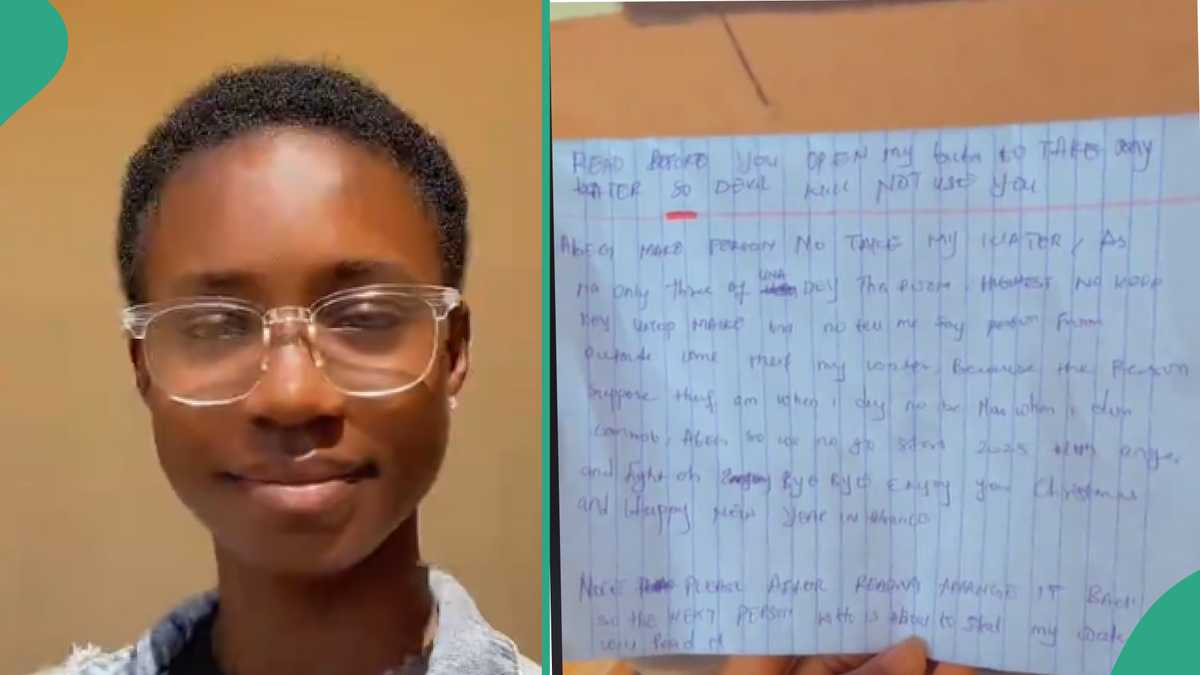 READ BEFORE YOU OPEN my TO TAKE my
WATER SO DEVIL WILL NOT USE YOU
ABEG MAKE PERSON NO TAKE MY WATER, AS
na only three of UNA DEY THE ROOM, HIGHEST NO
MAKE una no tell me say person from
outside come thief my water Because the Person
suppose thief am when i dey no be
Abeg so we no go start 2025 with
and fight oh Bye Bye Enjoy your Christmas
and Happy NEW YEAR IN
NOTE PLEASE AFTER READING ARRANGE IT BACK
so the NEXT PERSON who is about to steal my
will Read it